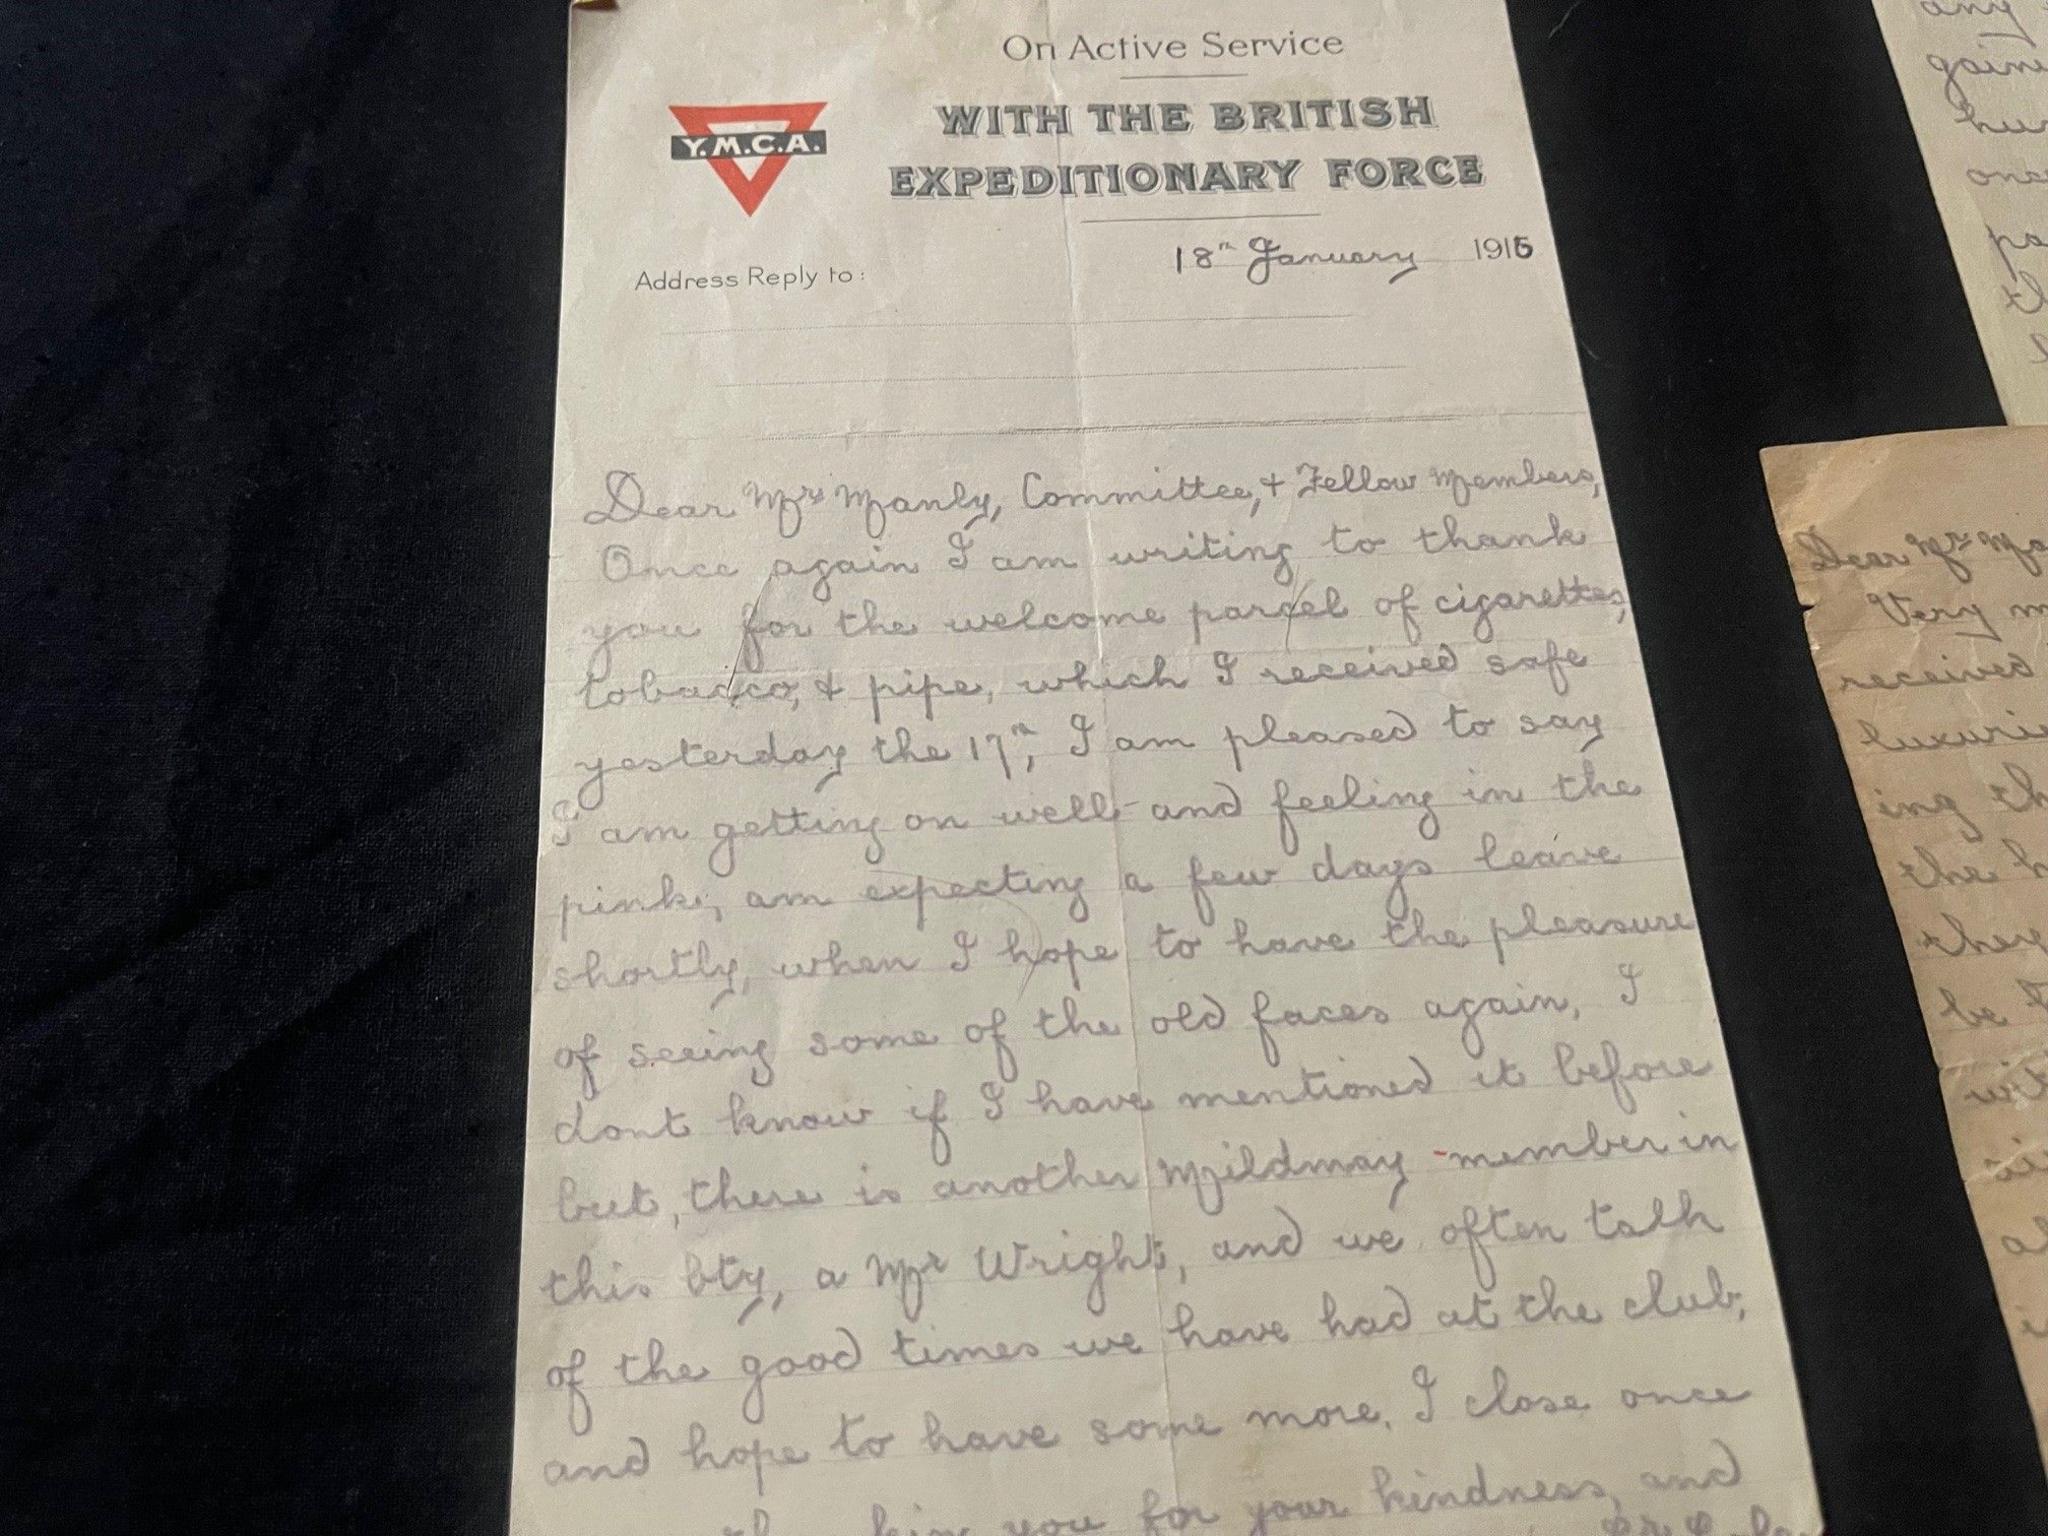 On Active Service
WITH THE BRITISH
EXPEDITIONARY FORCE
Y.M.C.A.
18th January 1916
Address Reply to:
Dear Mrs Manly, Committee, + Fellow Members,
Once again I am writing to thank
you for the welcome parcel of cigarettes,
tobacco, & pipe, which I received safe
yesterday the 17th, I am pleased to say
I am getting on well and feeling in the
pink, am expecting a few days leave
shortly, when I hope to have the pleasure
of seeing some of the old faces again, I
dont know if I have mentioned it before
but, there is another Mildmay member in
this bty, a Mr Wright, and we often talk
of the good times we have had at the club,
and hope to have some more, I close once
you for your kindness, and
any
once
Dear Mrs
Very
received
ing
the
they
be